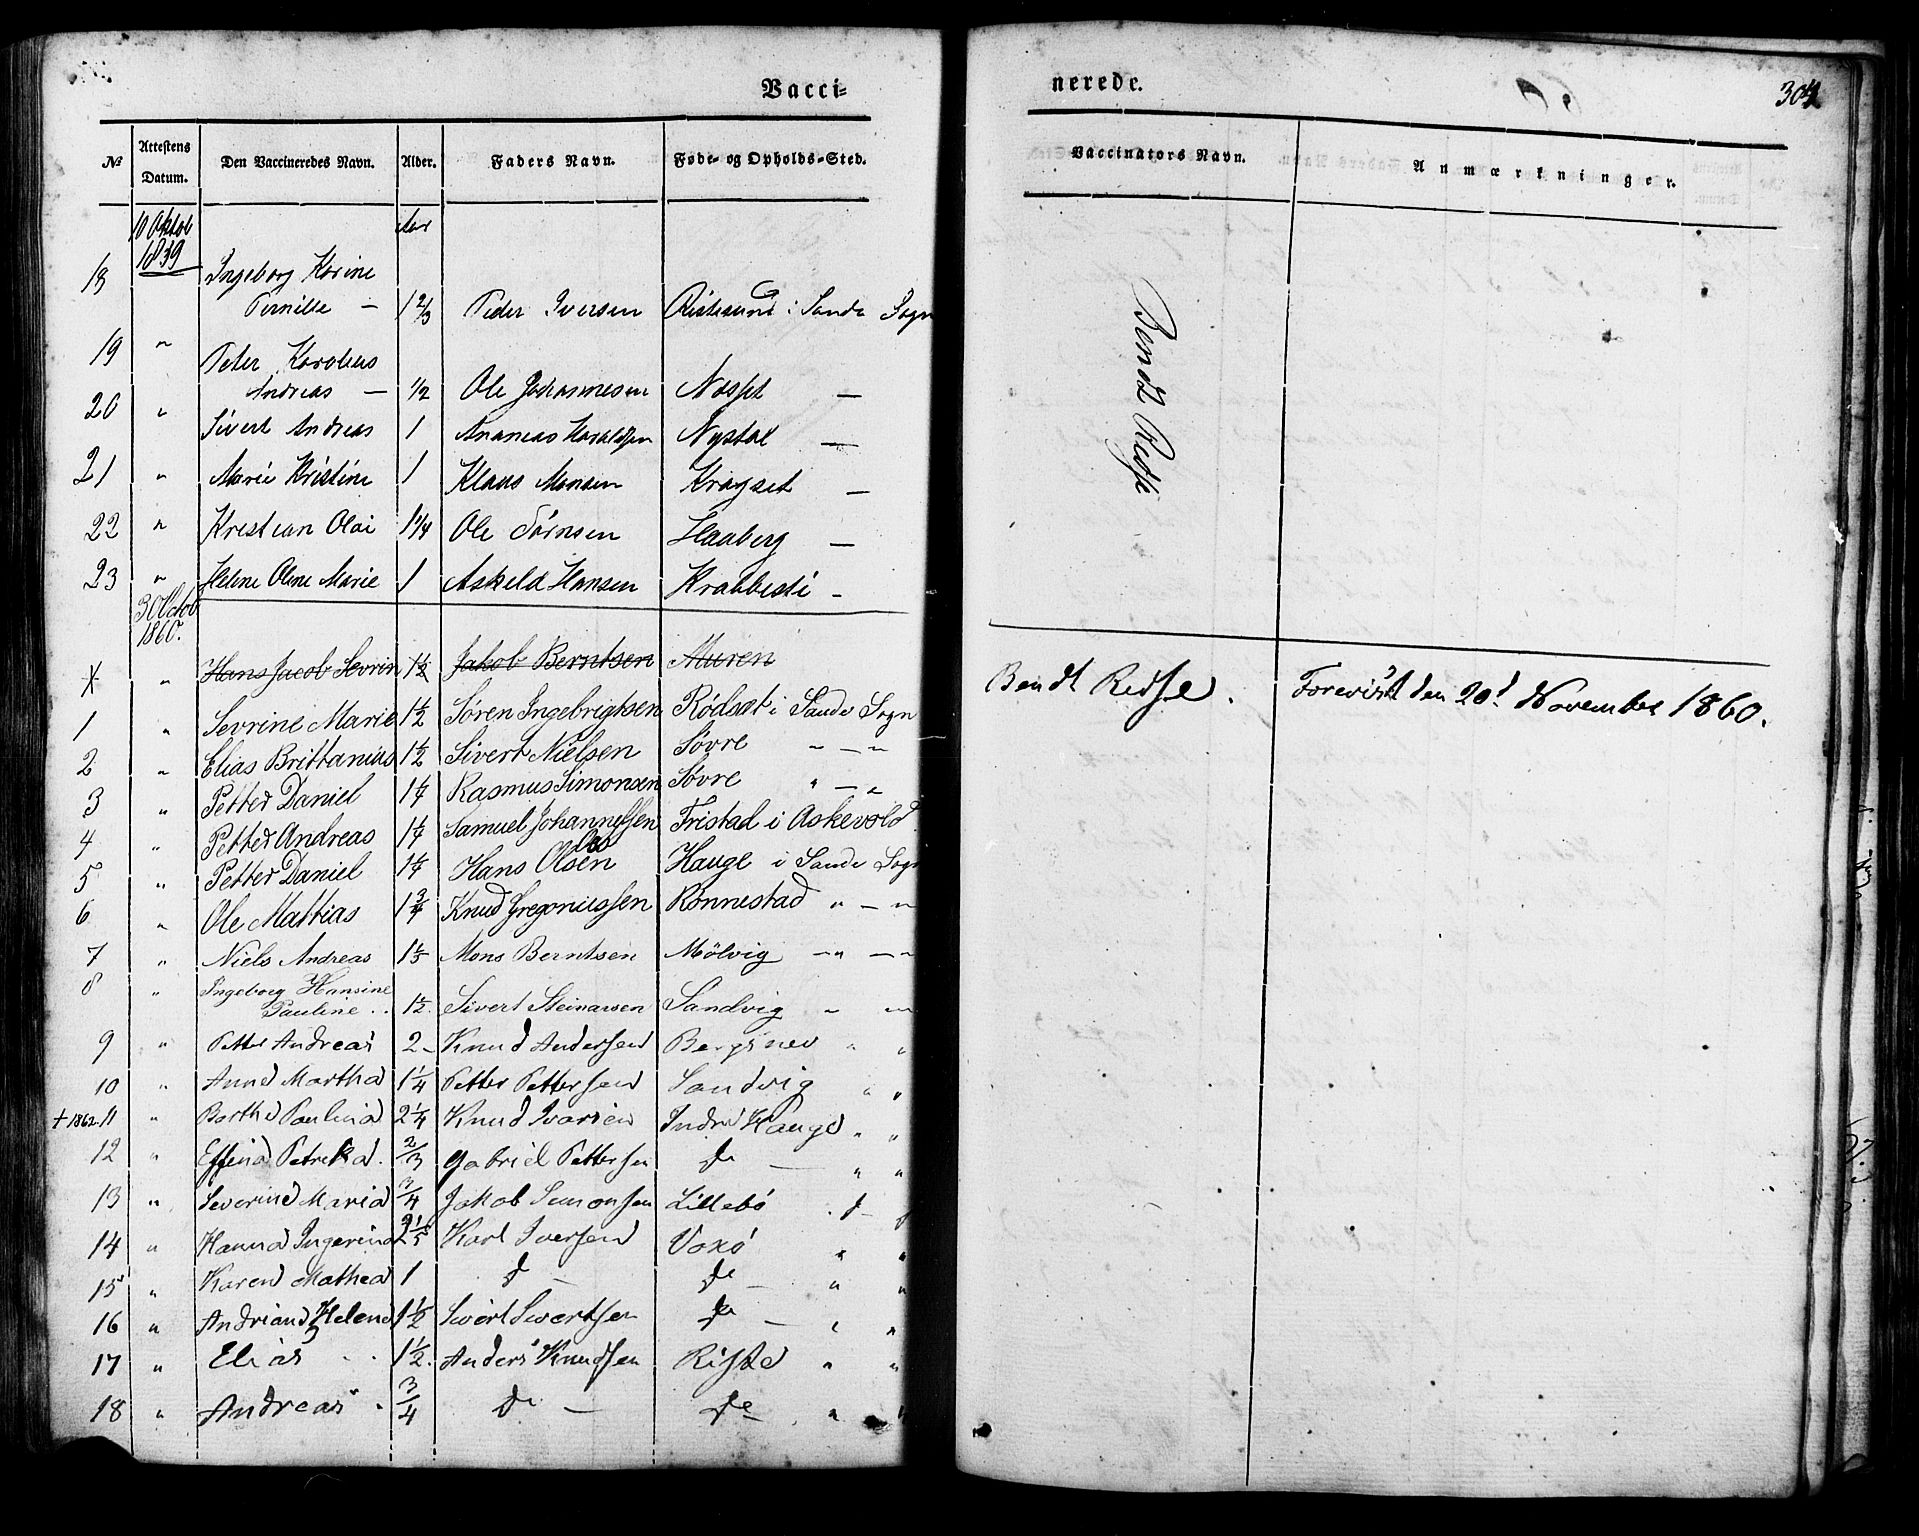 Vacci-
nerede.
304
No
Attestens Datum.
Den Vaccineredes Navn.
Alder.
Faders Navn.
Føde- og Opholds-Sted.
Vaccinators Navn.
Anmærkninger.
10 Oktob Aar
1859
18 Ingeborg Karine
Pernille — 1 2/3 Peder Iversen Ristesund i Sande Sogn
19 " Peter Karolus
Andreas — 1/2 Ole Johannesen Næsset —
20 " Sivert Andreas 1 Ananias Haraldsen Nystøl —
21 " Marie Kristine 1 Klaus Monsen Kragset —
22 " Kristian Olai 1 1/4 Ole Jørnsen Haaberg —
23 " Helene Oline Marie 1 Askeld Hansen Krabbesti -
Bendt Ridse
3 Octob
1860.
X " Hans Jacob Sevrin 1 1/2 Jakob Berntsen Muren
Bendt Ridse. Foreviist den 20d November 1860.
1 " Sevrine Marie 1 1/2 Søren Ingebrigtsen Rødsæt i Sande Sogn
2 " Elias Brittanius 1 1/2 Sivert Nielsen Søvre " — "
3 " Petter Daniel 1 1/4 Rasmus Simonsen Søvre " — "
4 " Petter Andreas 1 1/4 Samuel Johannessen Fristad i Askevold
5 " Petter Daniel 1 1/4 Hans Olsen Hauge i Sande Sogn
6 " Ole Mathias 1 3/4 Knud Gregoriussen Rønnestad " — "
7 " Niels Andreas 1 1/3 Mons Berntsen Mölvig — " — "
8 " Ingeborg Hansine
Pauline .. 1 1/2. Sivert Steinarsen Sandvig " "
9 " Petter Andreas 2 - Knud Andersen Bergsnev " "
10 " Anne Martha 1 1/4 Petter Pettersen Sandvig " "
+ 1862. 11 " Berthe Paulina 2 1/4 Knud Ivarsen Indre Hauge " "
12 " Effina Petrika. 2/3 Gabriel Pettersen de — " "
13 " Severine Maria 3/4 Jakob Simonsen Lillebö
14 " Hanna Ingerina 2 1/5 Karl Iversen Voxö " "
15 " Karen Mathea 1 d — de — " "
16 " Andriane Helena 1 1/2 Sivert Sivertsen de — " "
17 " Elias .. 1 1/2. Anders Knudsen Riste " "
18 " Andreas . 3/4 de — de . " "